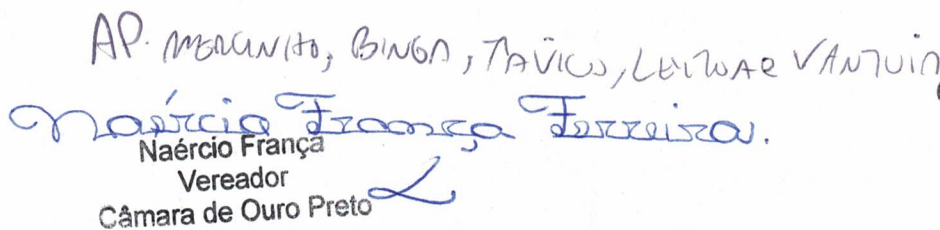 AP. MERCINHO, BINGA, TAVICO, LEITOAR VANTUIR
Naércio França Ferreira.
Naércio França
Vereador
Câmara de Ouro Preto